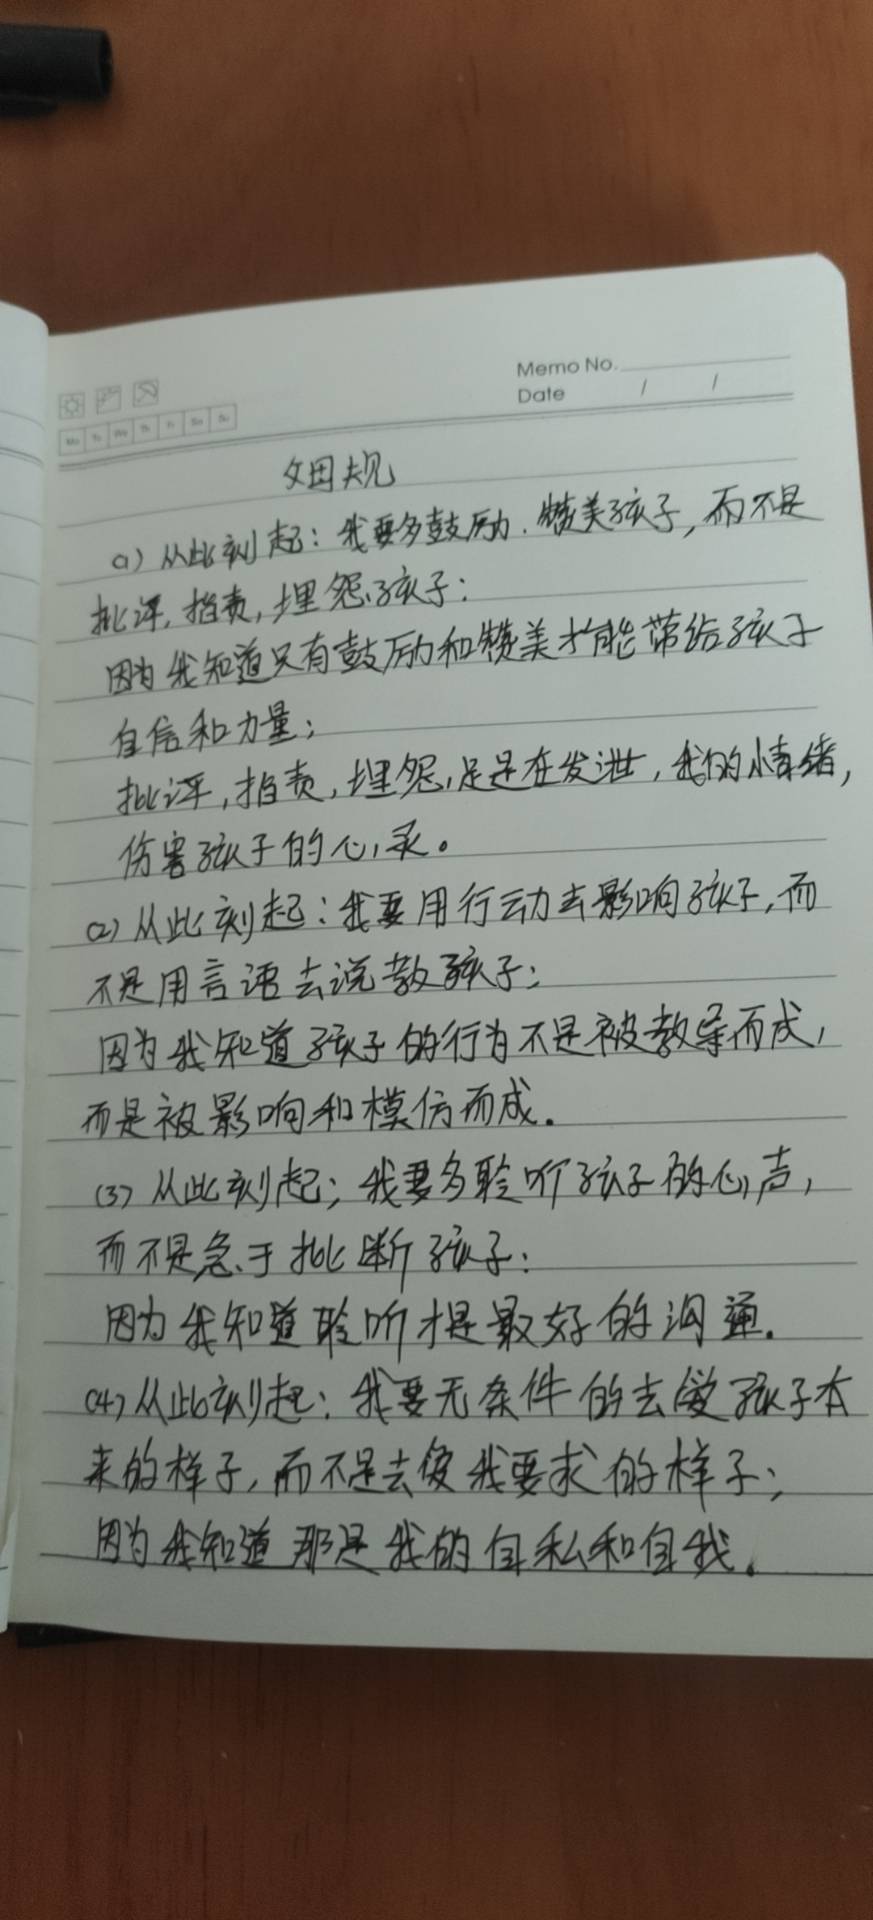 Memo No.
Date / /
Mo Tu We Th Fr Sa Su
规
(1) 从此刻起：我要多鼓励、赞美孩子，而不是
批评，指责，埋怨孩子：
因为我知道只有鼓励和赞美才能带给孩子
自信和力量；
批评，指责，埋怨，是在发泄，我的情绪，
伤害孩子的心灵。
(2) 从此刻起：我要用行动去影响孩子，而
不是用言语去说教孩子；
因为我知道孩子的行为不是被教导而成，
而是被影响和模仿而成．
(3) 从此刻起；我要多聆听孩子的心声，
而不是急于批断孩子：
因为我知道聆听才是最好的沟通．
(4) 从此刻起；我要无条件的去爱孩子本
来的样子，而不是去爱我要求的样子；
因为我知道那是我的自私和自我。